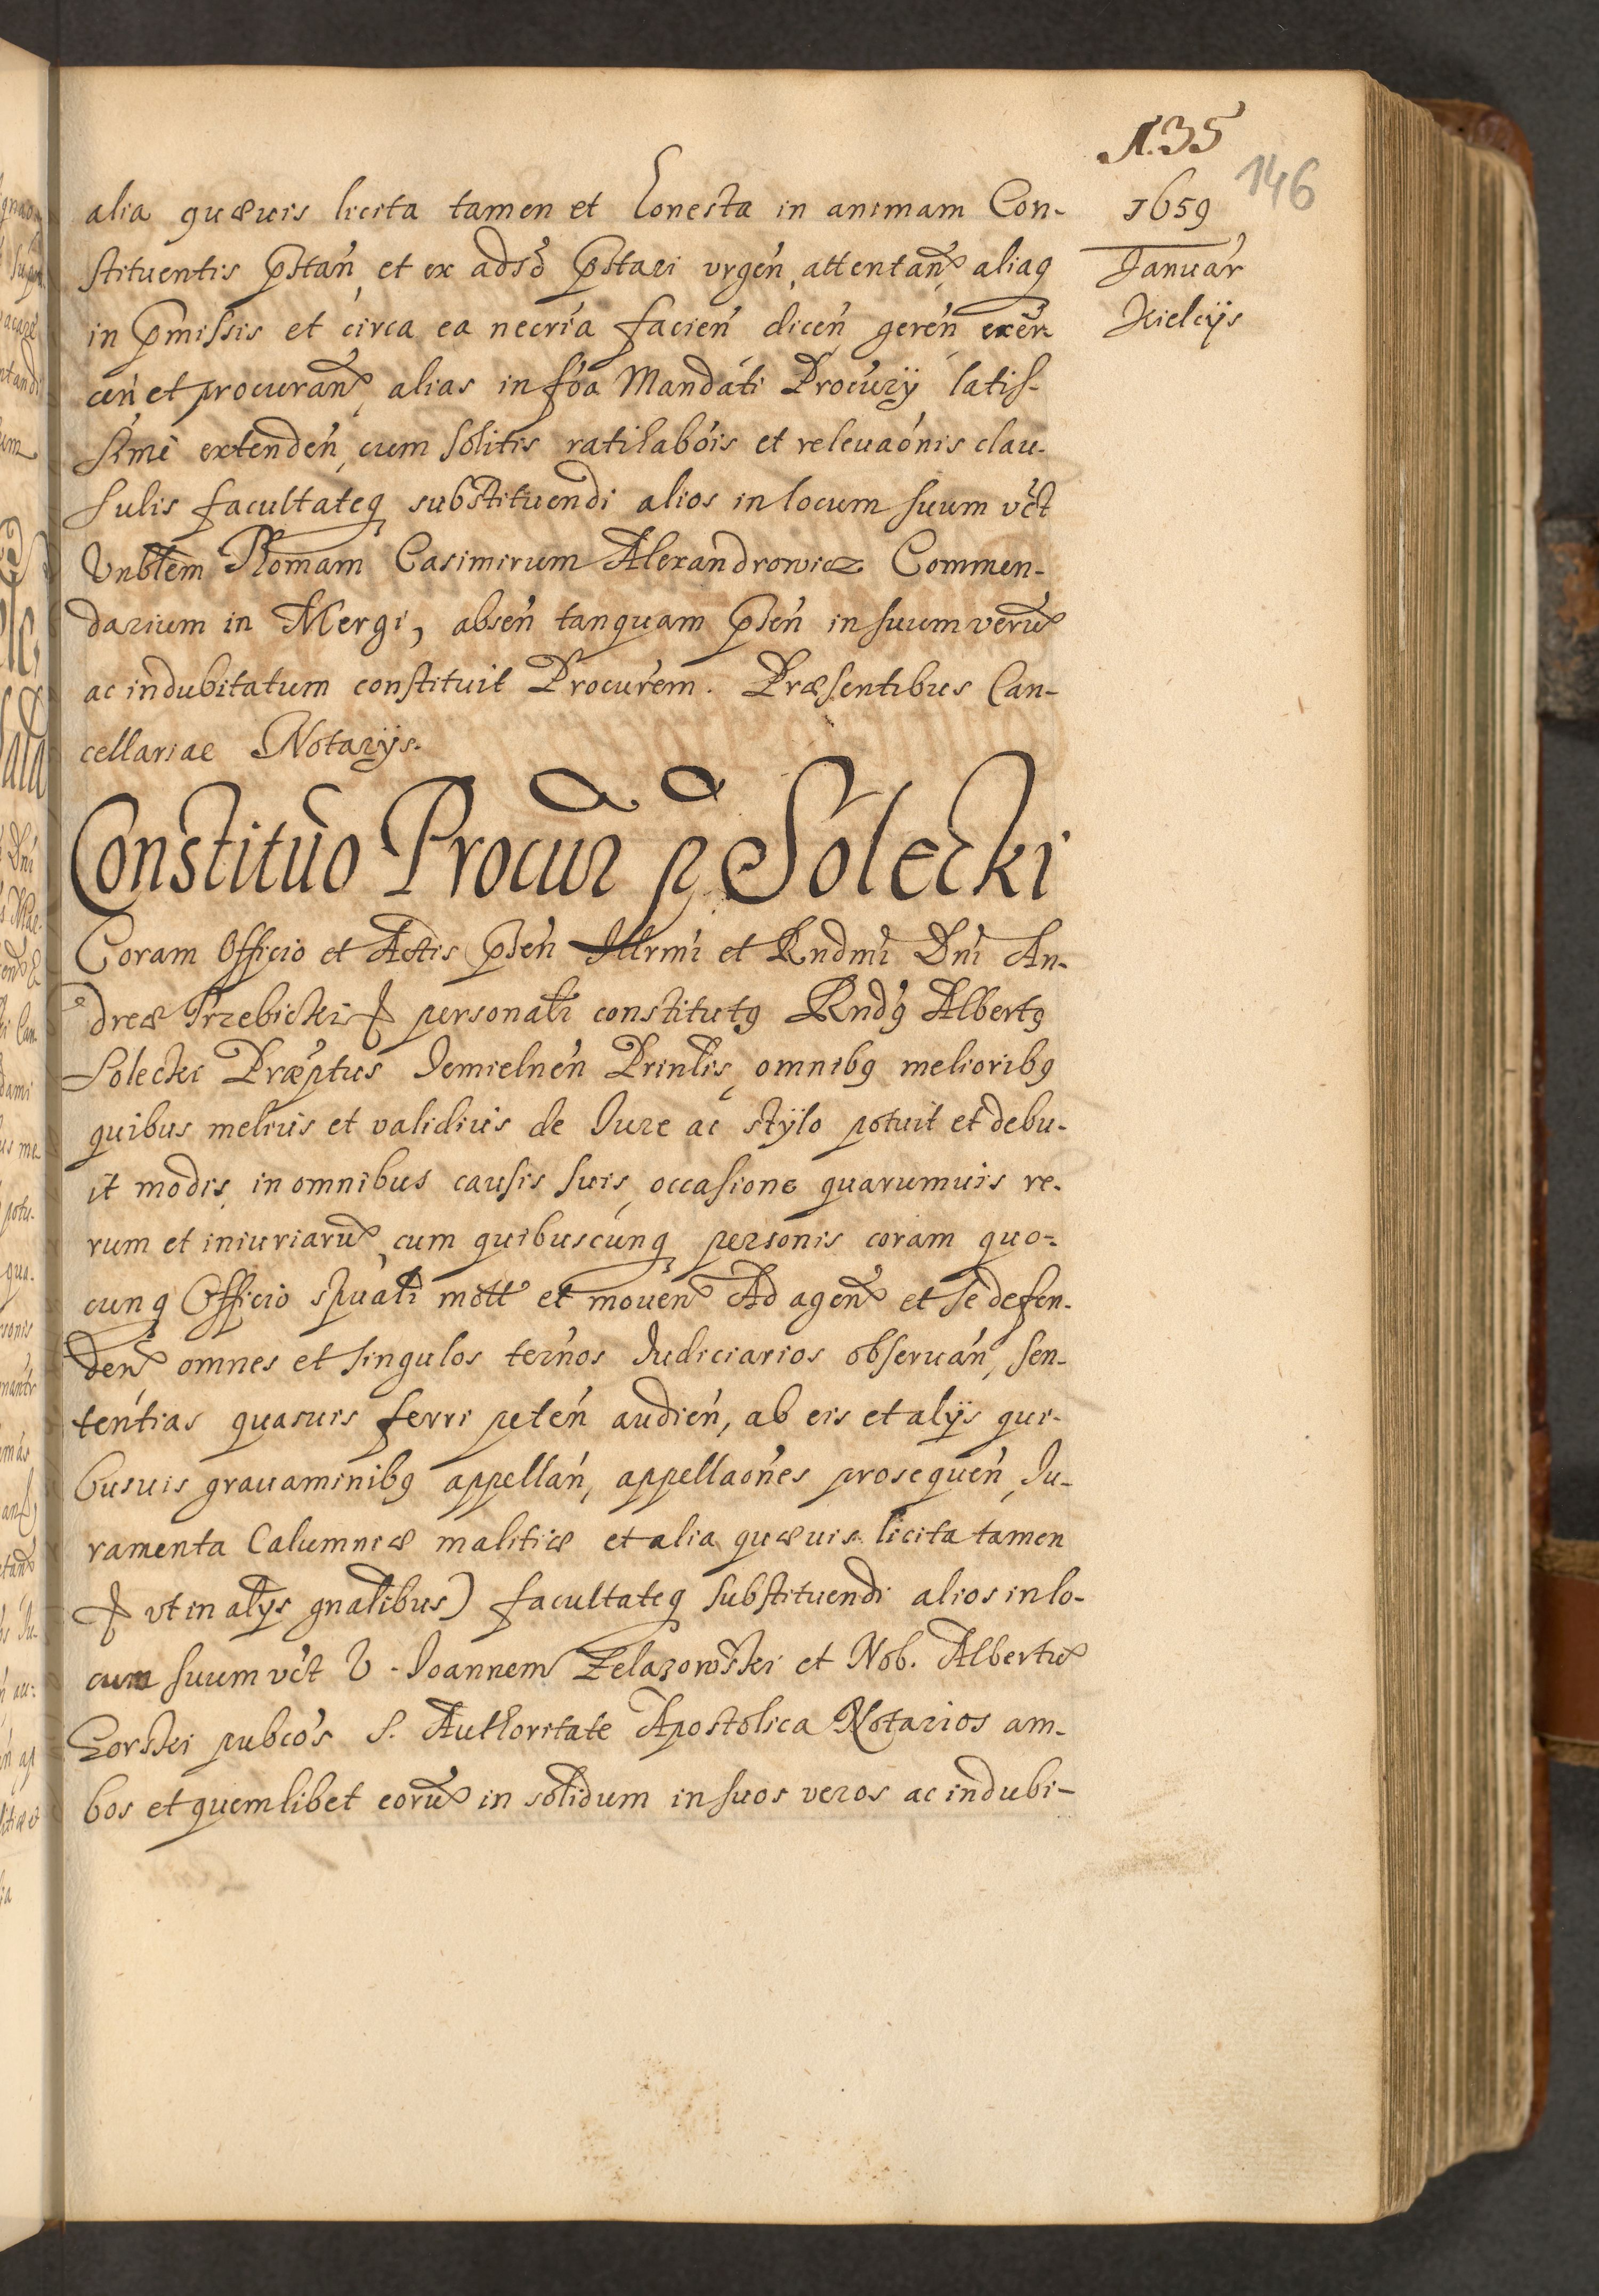 135
146
1659
Januar
Kielcÿs
alia quæuis licita tamen et honesta in animam Con-
stituentis pstan, et ex adso pstari vrgen, attentan, aliaq
in pmissis et circa ea necria facien dicen, geren exer-
cen et procuran, alias in foa Mandati Procurÿ latis-
sime extenden, cum solitis ratihabois et releuaonis clau-
sulis facultateq substituendi alios in locum suum vct
Vnblem Thomam Casimirum Alexandrowicz Commen-
darium in Mergi, absen tanquam psen in suum veru
ac indubitatum constituit Procurem. Præsentibus Can-
cellariae Notarÿs.
Constituo Procur p Solecki
Coram Officio et Actis psen Illrmi et Rndmi Dni An-
dreæ Trzebicki personalr constitutq Rndq Albertq
Solecki Præptus Jemielnen Prinlis, omnibq melioribq
quibus melius et validius de Iure ac stÿlo potuit et debu-
it modis, in omnibus causis suis, occasione quarumuis re-
rum et iniuriaru, cum quibuscunq personis coram quo-
cunq Officio spuali mott et mouen Ad agen et se defen-
den omnes et singulos ternos Iudiciarios obseruan, sen-
tentias quasuis ferri peten audien, ab eis et alÿs qui-
busuis grauaminibq appellan, appellaones prosequen, Iu-
ramenta Calumniæ malitiæ et alia quæuis licita tamen
vt in alÿs gnalibus) facultateq substituendi alios in lo-
cum suum vct V. Joannem Zelazowski et Nob. Albertu
Gorski pubcos S. Authoritate Apostolica Notarios am-
bos et quemlibet eoru in solidum in suos veros ac indubi-